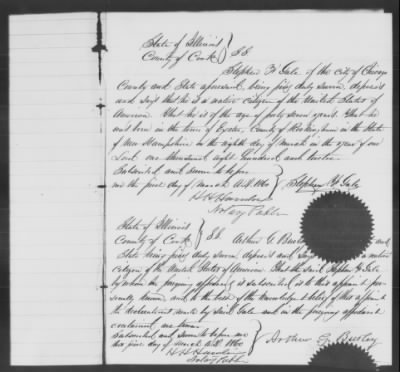 State of Illinois
County of Cook } S.S.
Stephen F Gale of the city of Chicago
County and State aforesaid, being first duly sworn, deposes
and says that he is a native citizen of the United States of
America that he is of the age of forty seven years. that he
was born in the town of Exeter, County of Rockingham in the State
of New Hampshire on the eighth day of March in the year of our
Lord one thousand eight hundred and twelve
Subscribed and sworn to before
me the first day of March A.D. 1860 } Stephen F. Gale
Notary Public
State of Illinois
County of Cook } S.S. Arthur G Burley and
State being first duly sworn deposes and says a native
citizen of the United States of America that the said Stephen F Gale
by whom the foregoing affidavit is subscribed is to this affiant per-
sonally known and to the best of the knowledge & belief of this affiant
the declarations made by said Gale and in the foregoing affidavit
contained are true
Subscribed and sworn to before me
this first day of March A.D. 1860 Arthur G. Burley
Notary Public